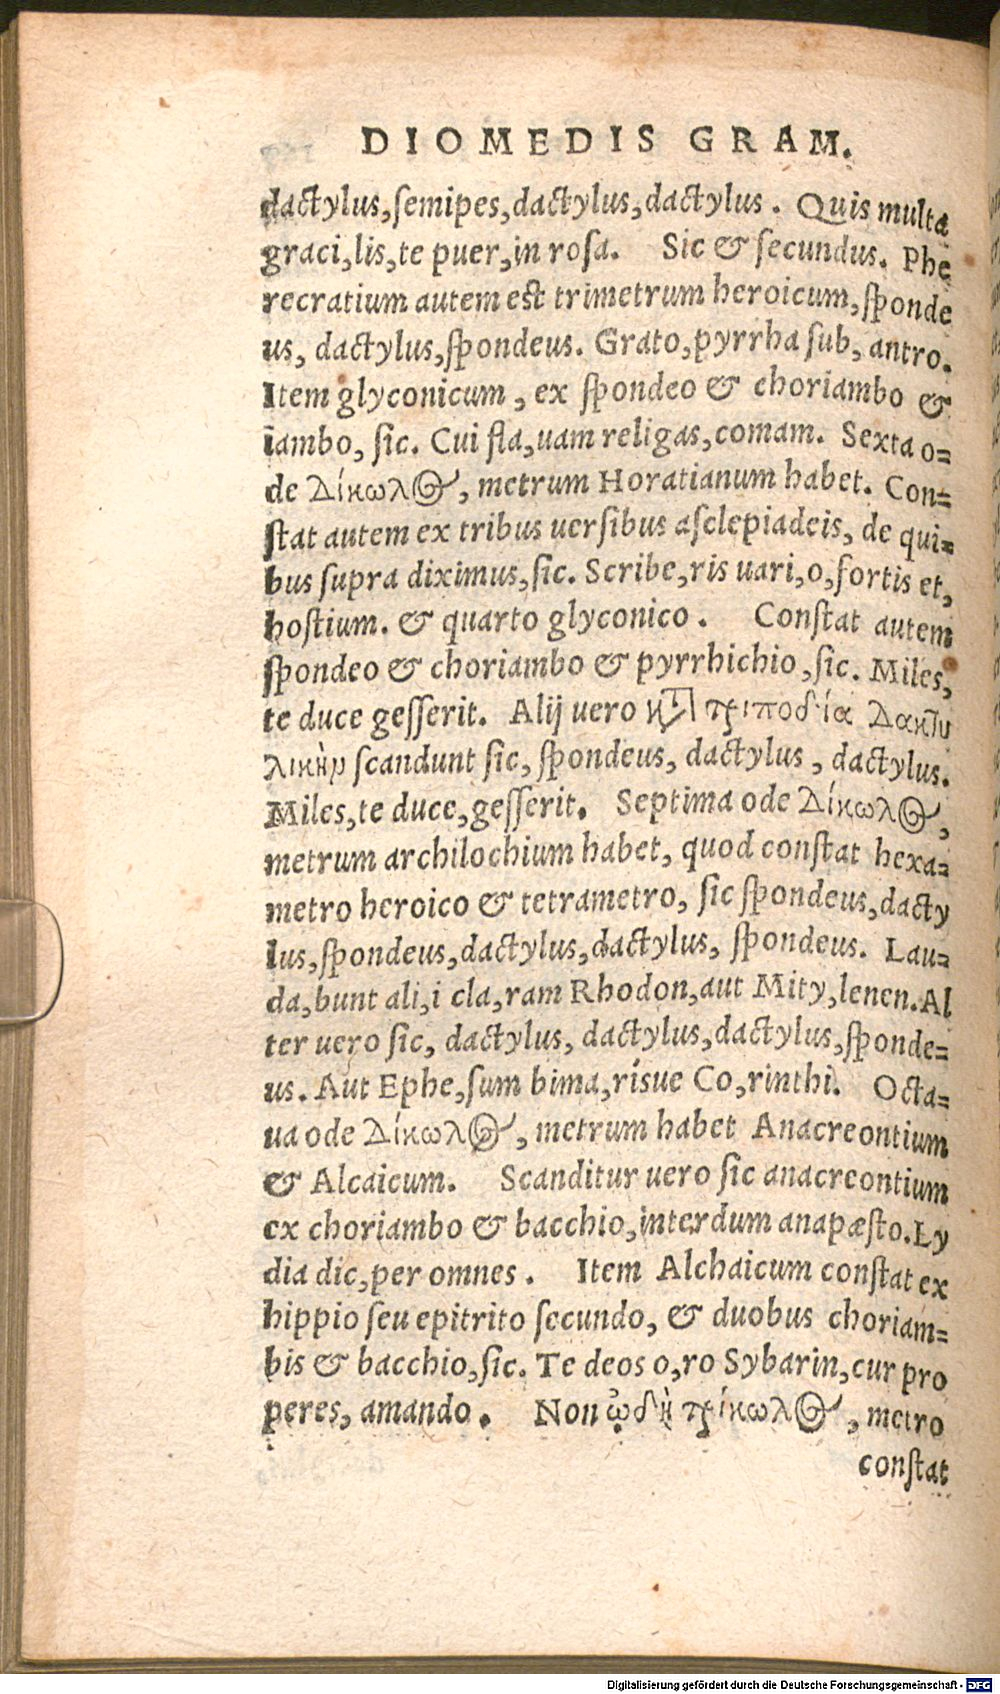 DIOMEDIS GRAM.
dactylus,ſemipes,dactylus,dactylus. Quis multa
graci,lis,te puer,in roſa. Sic & ſecundus. Phe
recratium autem eſt trimetrum heroicum,ſponde
us, dactylus,ſpondeus. Grato,pyrrha ſub, antro.
Item glyconicum, ex ſpondeo & choriambo &
iambo, ſic. Cui fla,uam religas,comam. Sexta o=
de Δίκωλος, metrum Horatianum habet. Con=
ſtat autem ex tribus uerſibus aſclepiadeis, de qui=
bus ſupra diximus,ſic. Scribe,ris uari,o,fortis et,
hoſtium. & quarto glyconico. Conſtat autem
ſpondeo & choriambo & pyrrhichio,ſic. Miles,
te duce geſſerit. Alij uero κατὰ τριποδία Δακτυ
λικὴν scandunt ſic, ſpondeus, dactylus, dactylus.
Miles,te duce,geſſerit. Septima ode Δίκωλος,
metrum archilochium habet, quod conſtat hexa=
metro heroico & tetrametro, ſic ſpondeus,dacty
lus,ſpondeus,dactylus,dactylus, ſpondeus. Lau=
da,bunt ali,i cla,ram Rhodon,aut Mity,lenen.Al
ter uero ſic, dactylus, dactylus,dactylus,ſponde=
us. Aut Ephe,ſum bima,risue Co,rinthi. Octa=
ua ode Δίκωλος, metrum habet Anacreontium
& Alcaicum. Scanditur uero ſic anacreontium
ex choriambo & bacchio,interdum anapæſto.Ly
dia dic,per omnes. Item Alchaicum conſtat ex
hippio ſeu epitrito ſecundo, & duobus choriam=
bis & bacchio,ſic. Te deos o,ro Sybarin,cur pro
peres, amando. Non ᾠδὴ τρίκωλος, metro
conſtat
Digitalisierung gefördert durch die Deutsche Forschungsgemeinschaft - DFG